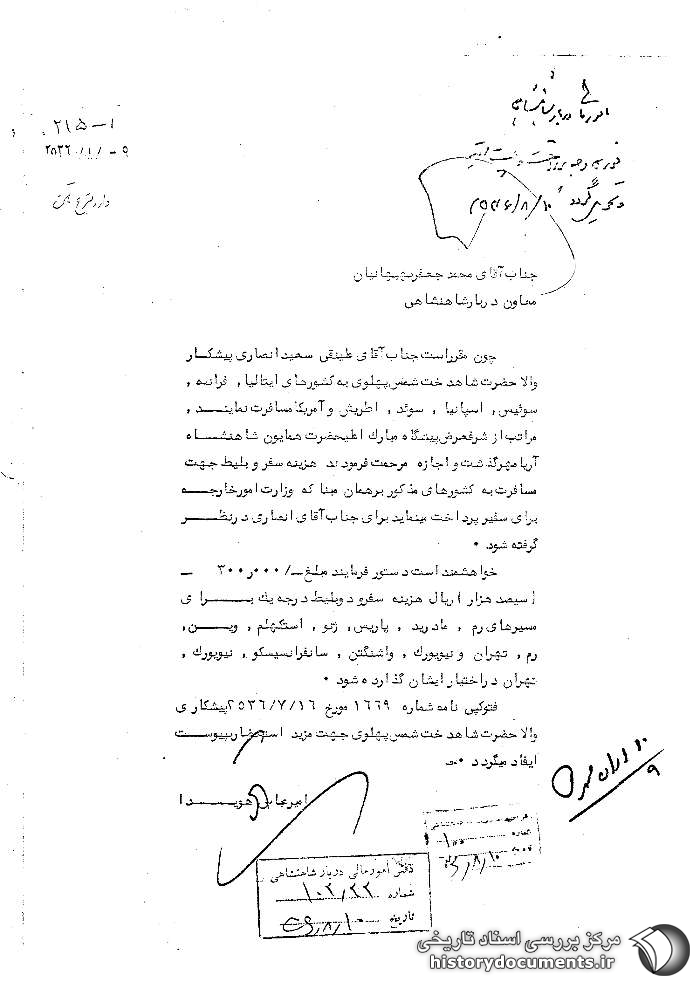 امور مالی دربار شاهنشاهی
فوری وجه پرداخت
گردد ۲۵۳۶/۸/۱۰
۲۱۵-۱
۲۵۳۶/۸/۹
جناب آقای محمد جعفر بهبهانیان
معاون دربار شاهنشاهی
چون مقرر است جناب آقای علینقی سعید انصاری پیشکار
والا حضرت شاهدخت شمس پهلوی به کشورهای ایتالیا , فرانسه ,
سوئیس, اسپانیا , سوئد, اطریش و آمریکا مسافرت نمایند ,
مراتب از شرفعرض پیشگاه مبارك اعلیحضرت همایون شاهنشاه
آریامهر گذشت و اجازه مرحمت فرمودند هزینه سفر و بلیط جهت
مسافرت به کشورهای مذکور بر همان مبنا که وزارت امور خارجه
برای سفیر پرداخت مینماید برای جناب آقای انصاری در نظر
گرفته شود .
خواهشمند است دستور فرمایند مبلغ -/۳۰۰ر۰۰۰ -
(سیصد هزار) ریال هزینه سفر و دو بلیط درجه یك برای
مسیرهای رم , مادرید , پاریس, ژنو , استکهلم , وین,
رم , تهران و نیویورك , واشنگتن , سانفرانسیسکو , نیویورك ,
تهران در اختیار ایشان گذارده شود .
فتوکپی نامه شماره ۱۶۶۹ مورخ ۲۵۳۶/۷/۱۶ پیشکاری
والا حضرت شاهدخت شمس پهلوی جهت مزید استحضار بپیوست
ایفاد میگردد .-
امیرعباس هویدا
شماره ۱۰۰
۳۶/۸/۱۰
دفتر امور مالی دربار شاهنشاهی
شماره ۱۰۲/۲۲
تاریخ ۳۶/۸/۱۰
مرکز بررسی اسناد تاریخی
historydocuments.ir